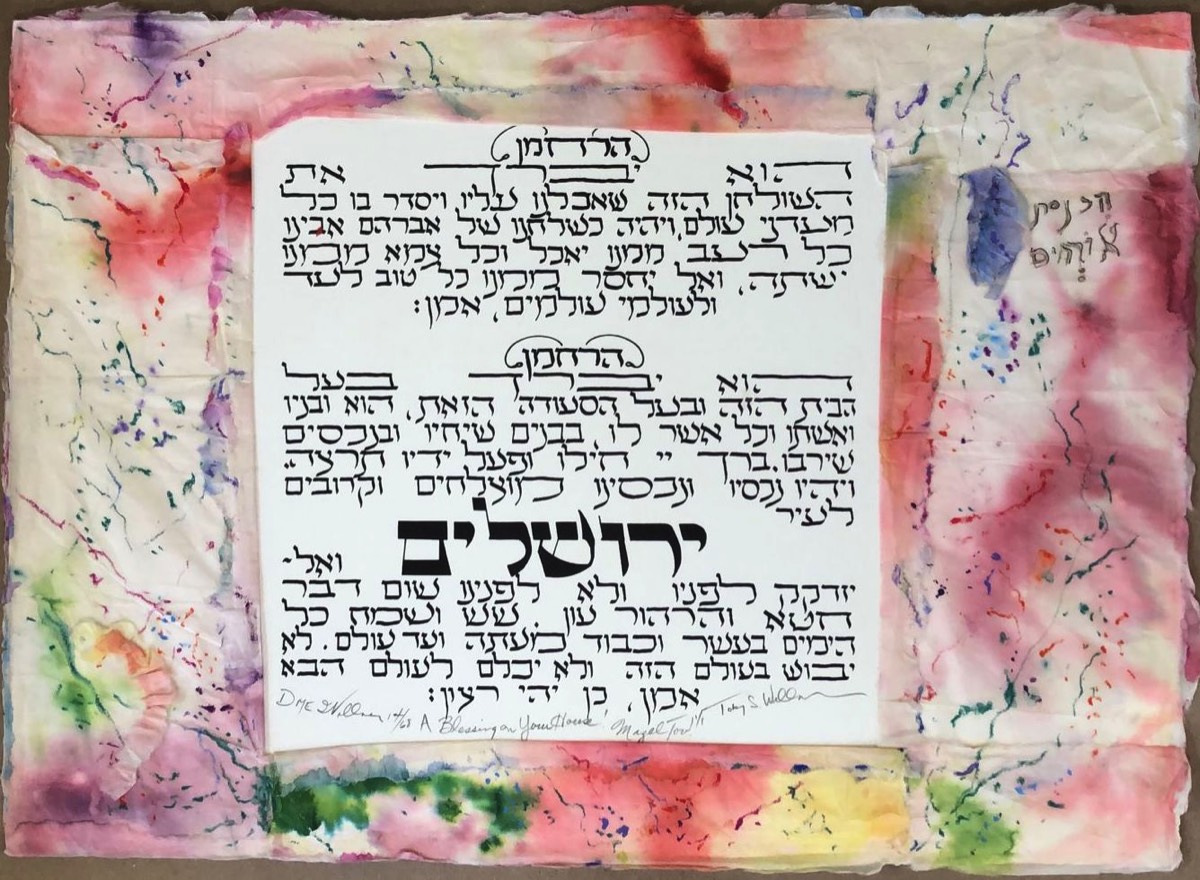 הרחמן
הוא יברך את
השולחן הזה שאכלנו עליו ויסדר בו כל
מעדני עולם, ויהיה כשלחנו של אברהם אבינו
כל רעב ממנו יאכל וכל צמא ממנו
ישתה, ואל יחסר ממנו כל טוב לעד
ולעולמי עולמים, אמן:
הרחמן
הוא יברך בעל
הבית הזה ובעל הסעודה הזאת, הוא ובניו
ואשתו וכל אשר לו, בבנים שיחיו ובנכסים
שירבו. ברך יי חילו ופעל ידיו תרצה.
ויהיו נכסיו ונכסינו מוצלחים וקרובים
לעיר
ירושלים ואל-
יזדקק לפניו ולא לפנינו שום דבר
חטא והרהור עון. שש ושמח כל
הימים בעשר וכבוד מעתה ועד עולם. לא
יבוש בעולם הזה ולא יכלם לעולם הבא
אמן, כן יהי רצון:
A Blessing on Your House, Mazel Tov 1/1 Toby S
הכנסת
אורחים